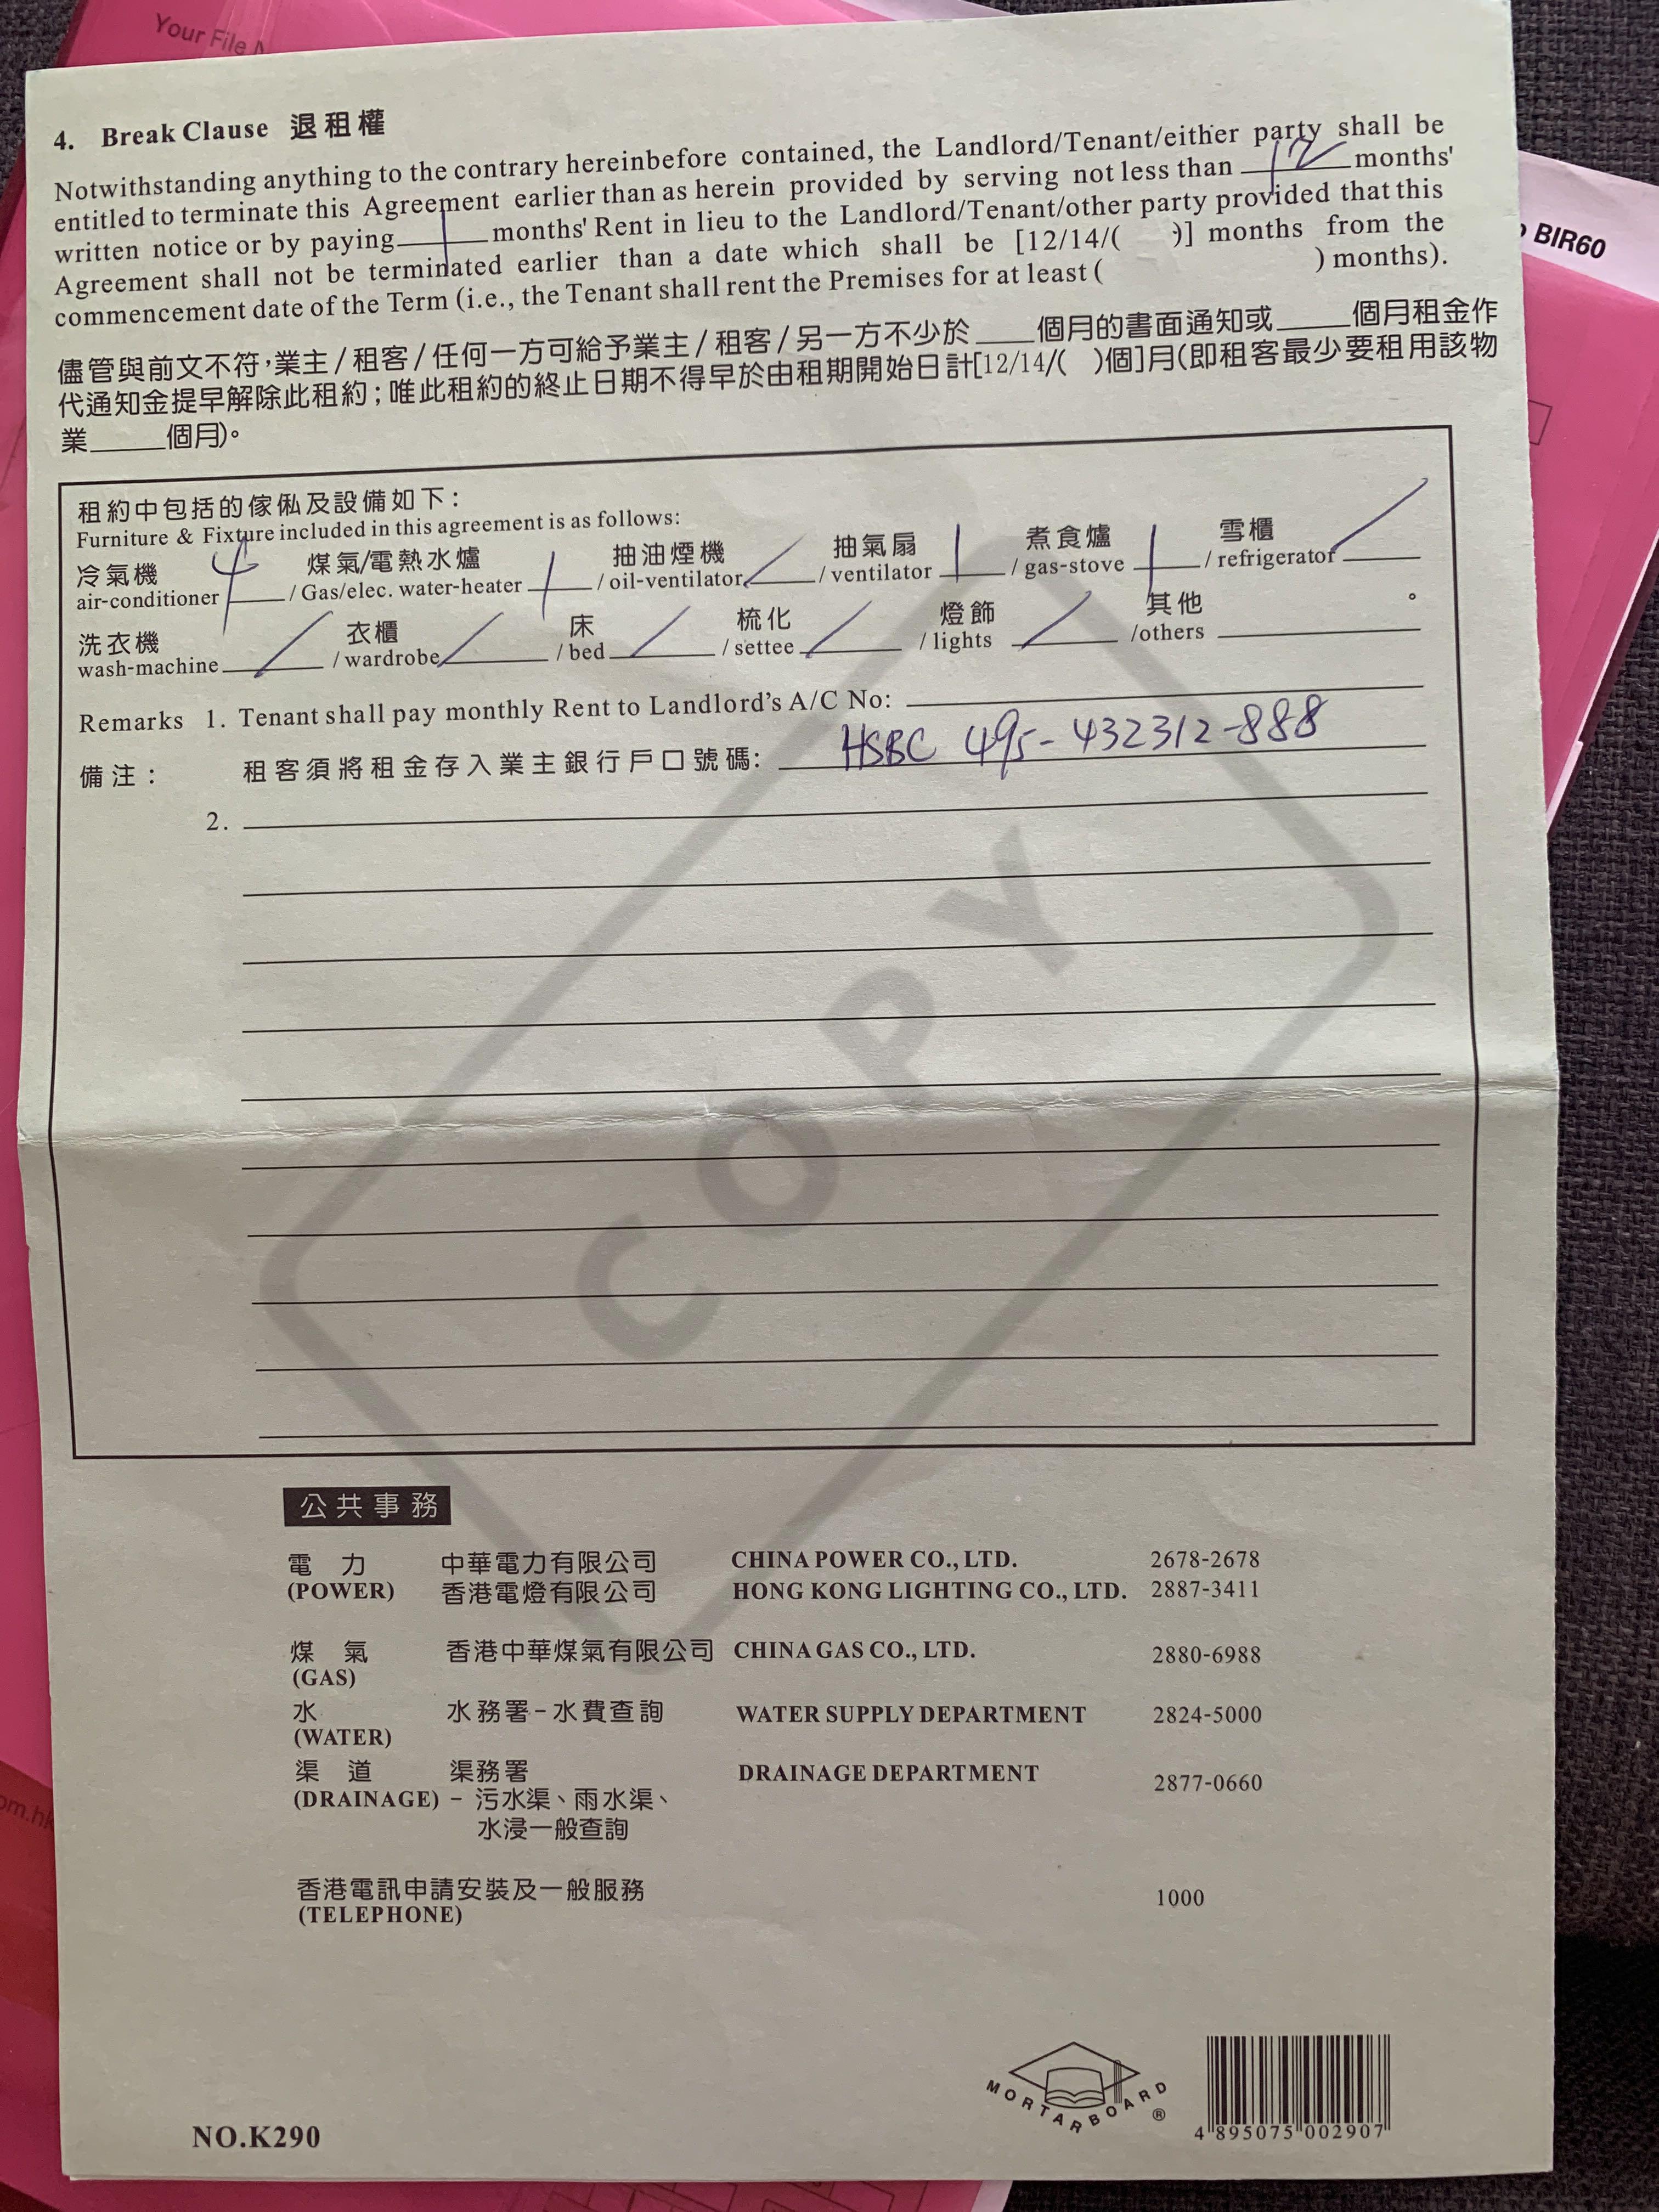 Your File N
BIR60
4. Break Clause 退租權
Notwithstanding anything to the contrary hereinbefore contained, the Landlord/Tenant/either party shall be
entitled to terminate this Agreement earlier than as herein provided by serving not less than 12 months'
written notice or by paying 1 months' Rent in lieu to the Landlord/Tenant/other party provided that this
Agreement shall not be terminated earlier than a date which shall be [12/14/( )] months from the
commencement date of the Term (i.e., the Tenant shall rent the Premises for at least ( ) months).
儘管與前文不符,業主/租客/任何一方可給予業主/租客/另一方不少於____個月的書面通知或____個月租金作
代通知金提早解除此租約;唯此租約的終止日期不得早於由租期開始日計[12/14/( )個]月(即租客最少要租用該物
業____個月)。
租約中包括的傢俬及設備如下:
Furniture & Fixture included in this agreement is as follows:
冷氣機 4 煤氣/電熱水爐 1 抽油煙機 抽氣扇 1 煮食爐 1 雪櫃
air-conditioner / Gas/elec. water-heater / oil-ventilator / ventilator / gas-stove / refrigerator
洗衣機 衣櫃 床 梳化 燈飾 其他 。
wash-machine / wardrobe / bed / settee / lights /others
Remarks 1. Tenant shall pay monthly Rent to Landlord's A/C No:
備注: 租客須將租金存入業主銀行戶口號碼: HSBC 495-432312-888
2.
COPY
公共事務
電力 中華電力有限公司 CHINA POWER CO., LTD. 2678-2678
(POWER) 香港電燈有限公司 HONG KONG LIGHTING CO., LTD. 2887-3411
煤氣 香港中華煤氣有限公司 CHINA GAS CO., LTD. 2880-6988
(GAS)
水 水務署-水費查詢 WATER SUPPLY DEPARTMENT 2824-5000
(WATER)
渠道 渠務署 DRAINAGE DEPARTMENT 2877-0660
(DRAINAGE) - 污水渠、雨水渠、
水浸一般查詢
香港電訊申請安裝及一般服務 1000
(TELEPHONE)
om.hk
MORTARBOARD ®
4 895075 002907
NO.K290